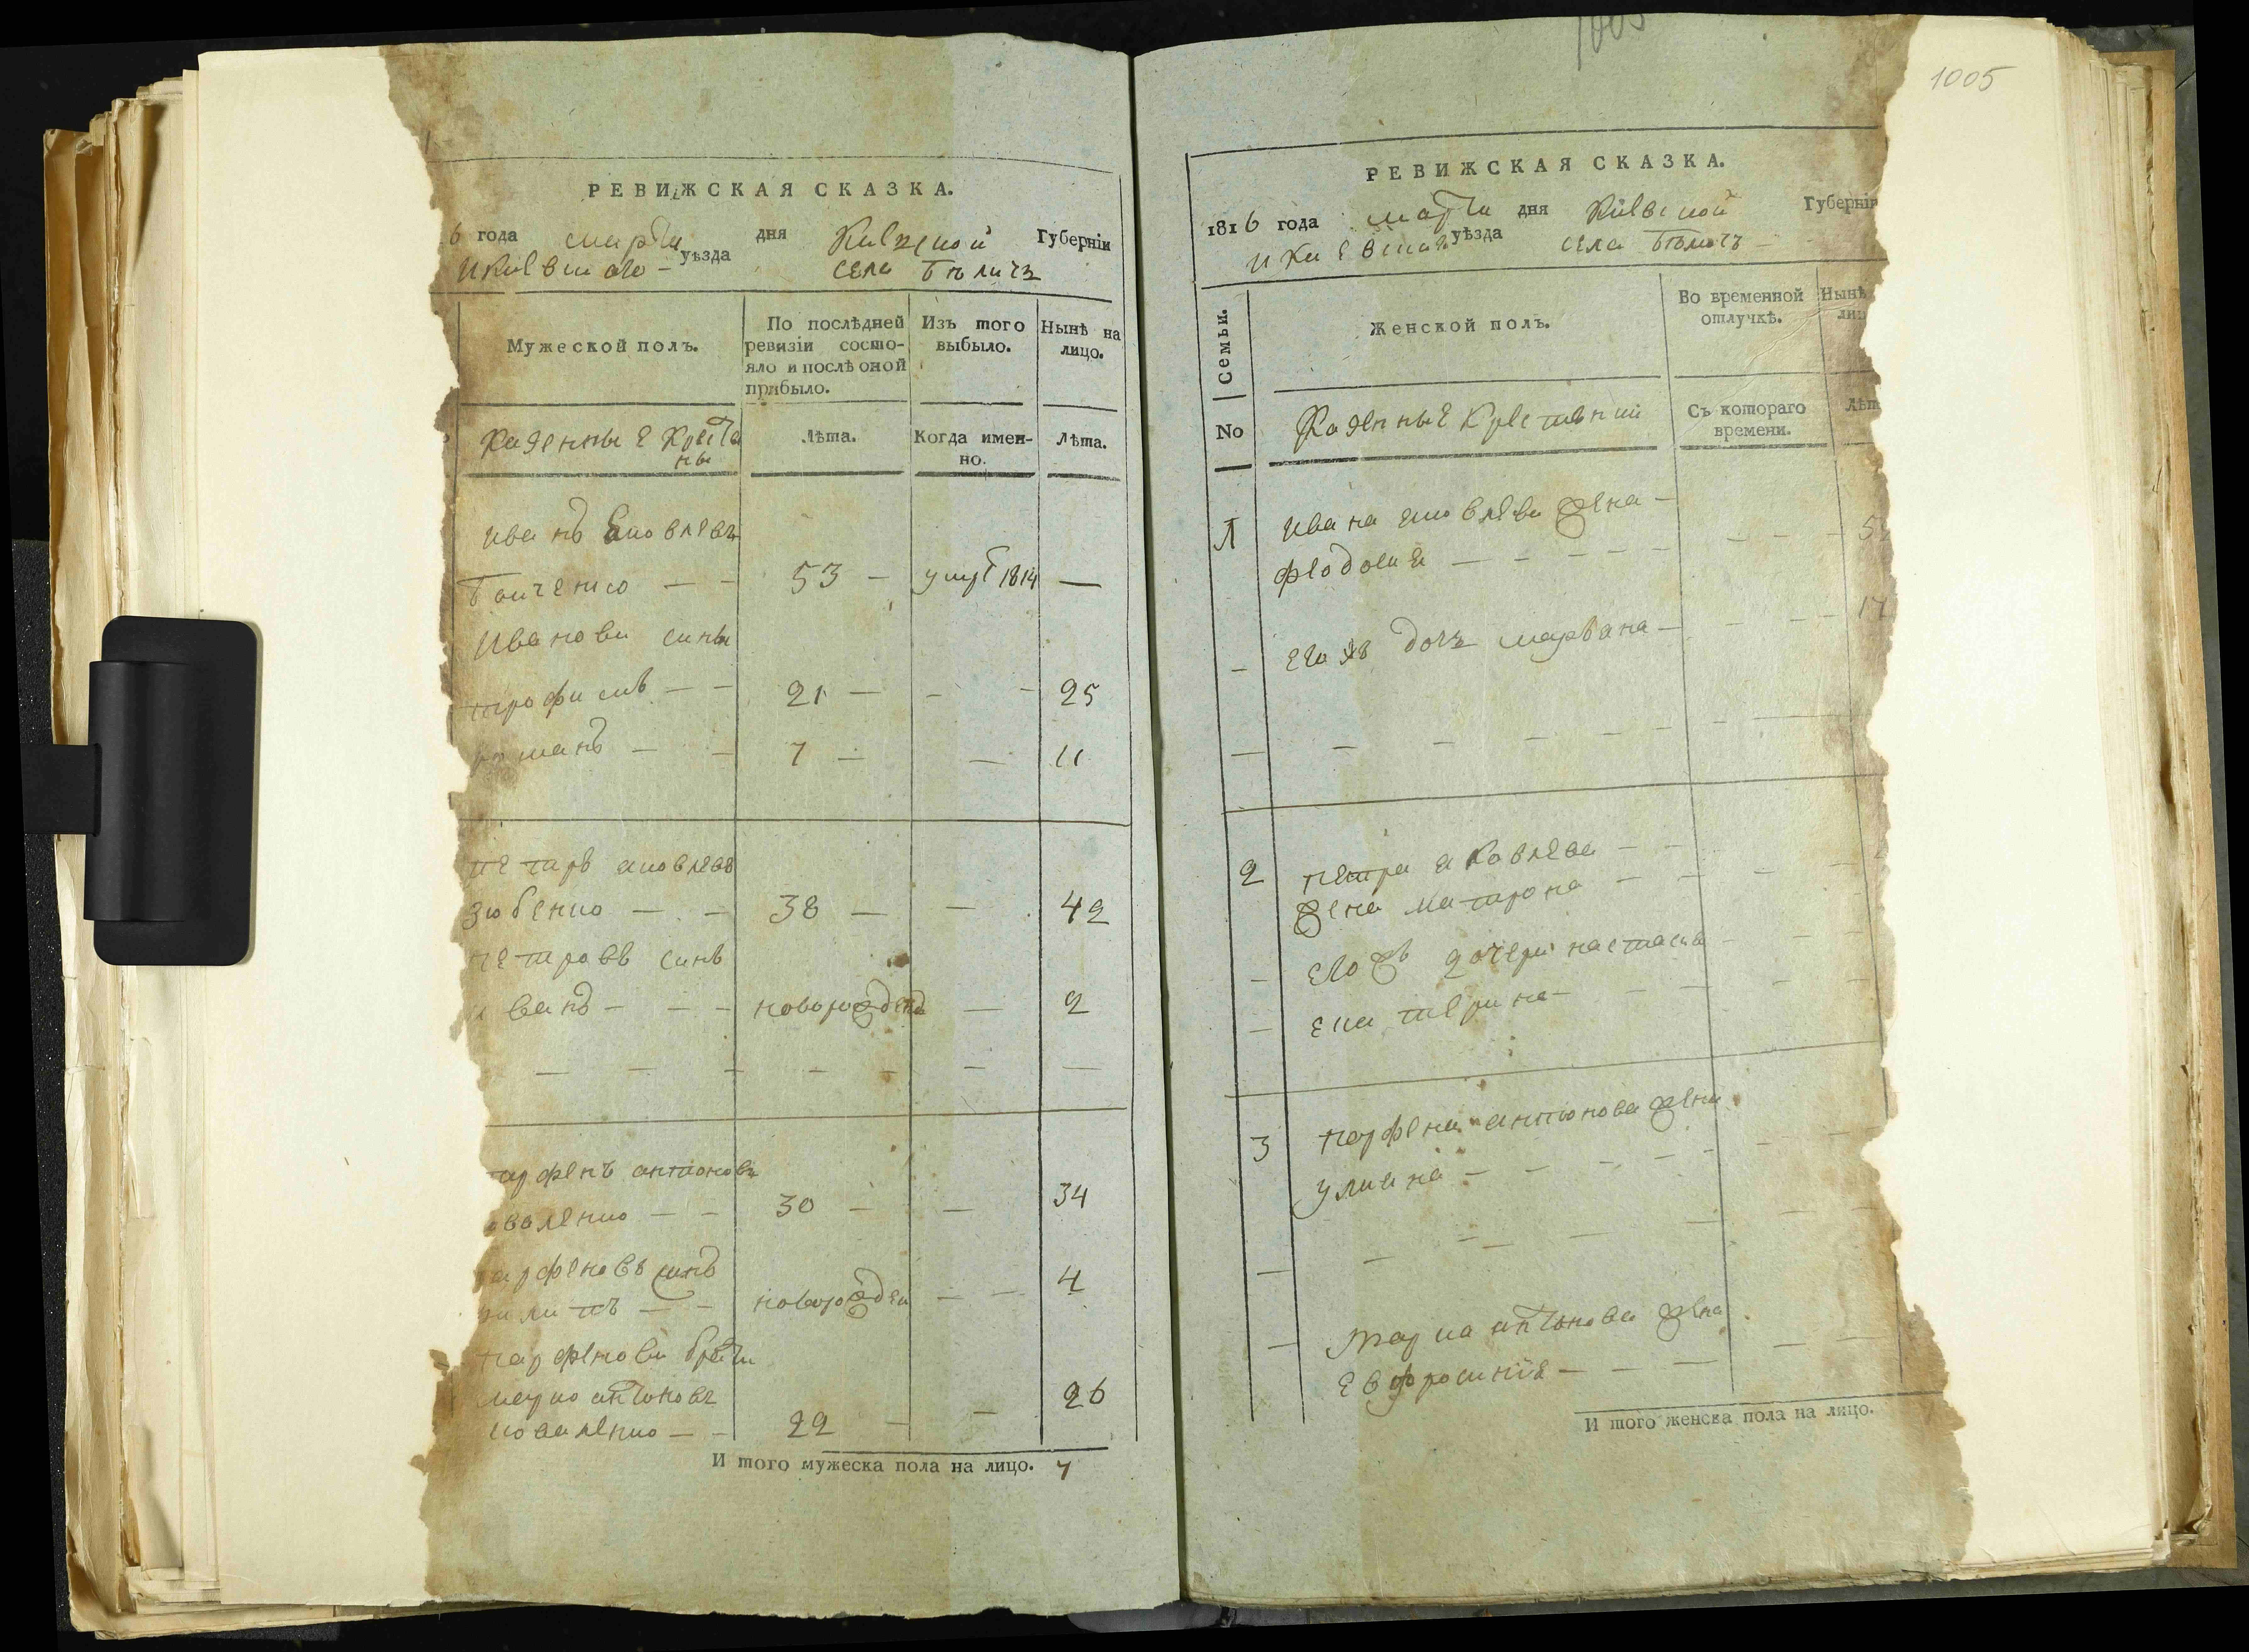 РЕВИЖСКАЯ СКАЗКА.
6 года марта дня Киевской Губерніи
и Киевскаго уѣзда села Бѣличъ
Мужеской полъ.
По послѣдней ревизіи состо-
яло и послѣ оной
прибыло.
Изъ того
выбыло.
Нынѣ на
лицо.
Казенные Креста
ны
Лѣта.
Когда имен-
но.
Лѣта.
Иванъ Яковлевъ
53 умре 1814
Иванови сины
трофимъ 21 25
романъ 7 11
петръ яковлевъ
зюбенко 38 42
петровъ синъ
иванъ новорожденъ 2
парфенъ антоновъ
коваленко 30 34
парфеновъ синъ
новорожден 4
парфенови брати
марко антоновъ 26
коваленко 22
И того мужеска пола на лицо. 7
1005
1005
РЕВИЖСКАЯ СКАЗКА.
1816 года марта дня Киевской Губерніи
и Киевскаго уѣзда села Бѣличъ
Семьи.
Женской полъ.
Во временной
отлучкѣ.
Нынѣ
ли
No
Казенные Крестянкии
Съ котораго
времени.
Лѣт
1 Ивана яковлева жена
феодосия 5
его жъ дочъ марвана 17
2 петра яковлева
жена матрона
его жъ дочери настасия
екатерина
3 парфена антонова жена
улияна
марка антонова жена
Евфросинія
И того женска пола на лицо.